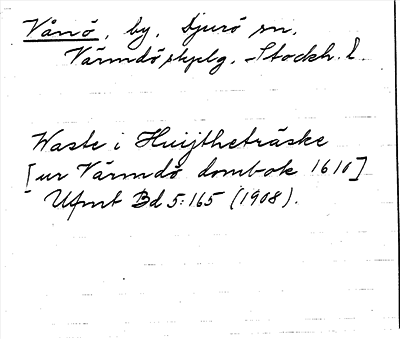 Vånö, by, Djurö sn.
Värmdö skplg. Stockh. l.
Waste i Huijtheträske
[ur Värmdö dombok 1610]
Ufmt Bd 5:165 (1908).